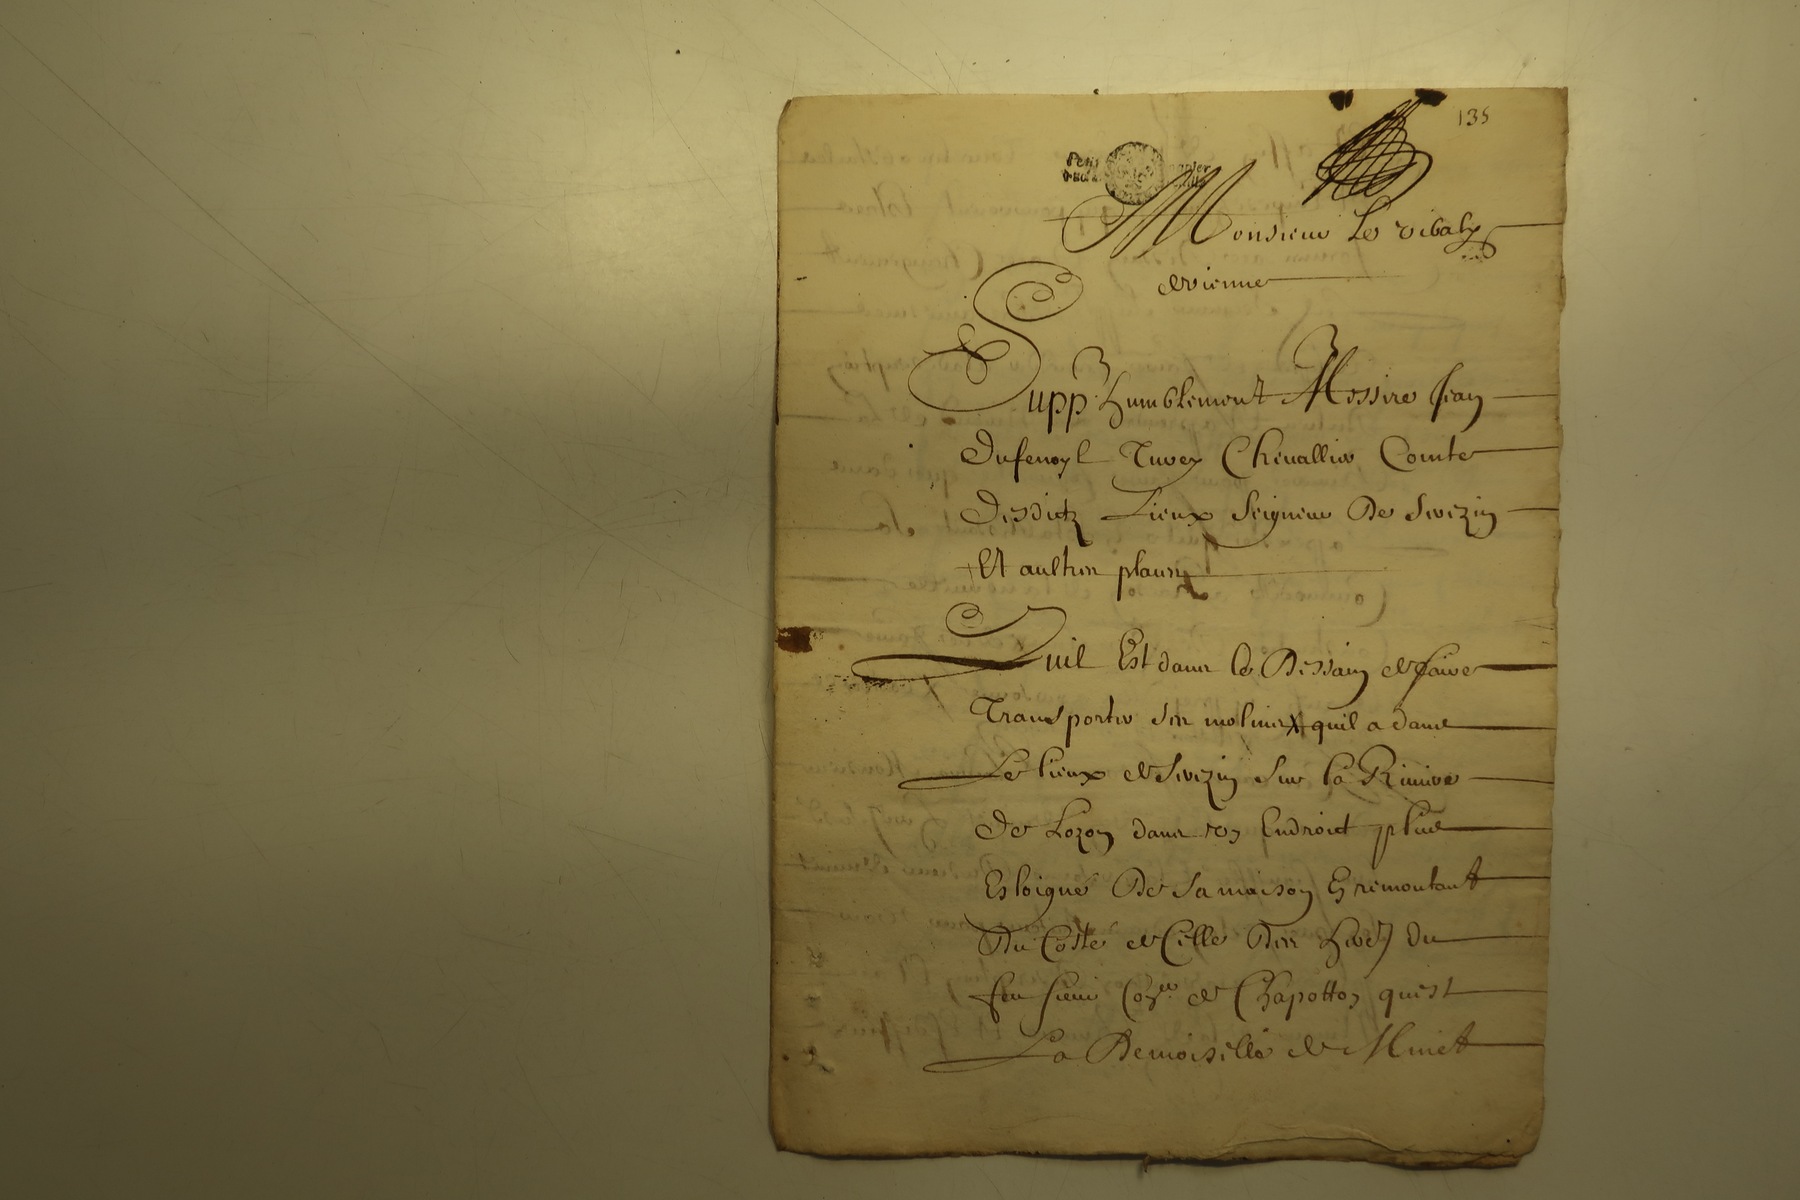 135
Petit papier
Monsieur Le vibaly
de vienne
Supp.t humblement Messire Jean
Dufenoyl Turey Chevallier Comte
Desditz Lieux Seigneur De Serezin
Et aultres places
Quil Est dans le Dessain de faire
Transporter ses molines quil a dans
Le lieux de Serezin sur la Riviere
De Lozon dans un Endroit plus
Esloigné De sa maison En remontant
Du Costé de Celle Des hers du
feu sieur de Chapotton quest
La Demoiselle de Miret